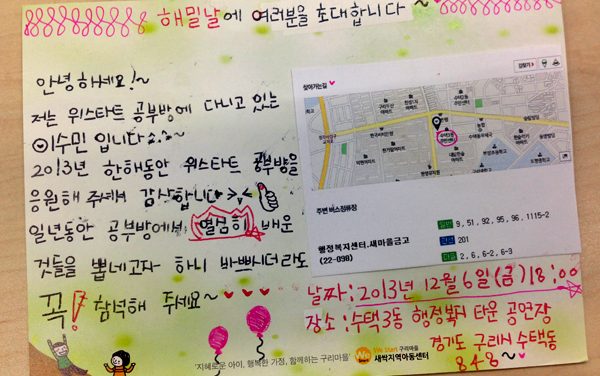 해밀날에 여러분을 초대합니다~
안녕하세요!~
저는 위스타트 공부방에 다니고 있는
이수민 입니다^^~
2013년 한해동안 위스타트 공부방을
응원해 주셔서 감사합니다 >.<
일년동안 공부방에서 열심히 배운
것들을 뽑네고자 하니 바쁘시더라도
꼭! 참석해 주세요~ ♥ ♥ ♥
찾아가는길
길찾기
주변 버스정류장
행정복지센터.새마을금고
(22-098)
9, 51, 92, 95, 96, 1115-2
201
2, 6, 6-2, 6-3
날짜:2013년 12월 6일(금)18:00
장소:수택3동 행정복지 타운 공연장
경기도 구리시 수택동
848~
'지혜로운 아이, 행복한 가정, 함께하는 구리마을'
We Start 구리마을
새싹지역아동센터